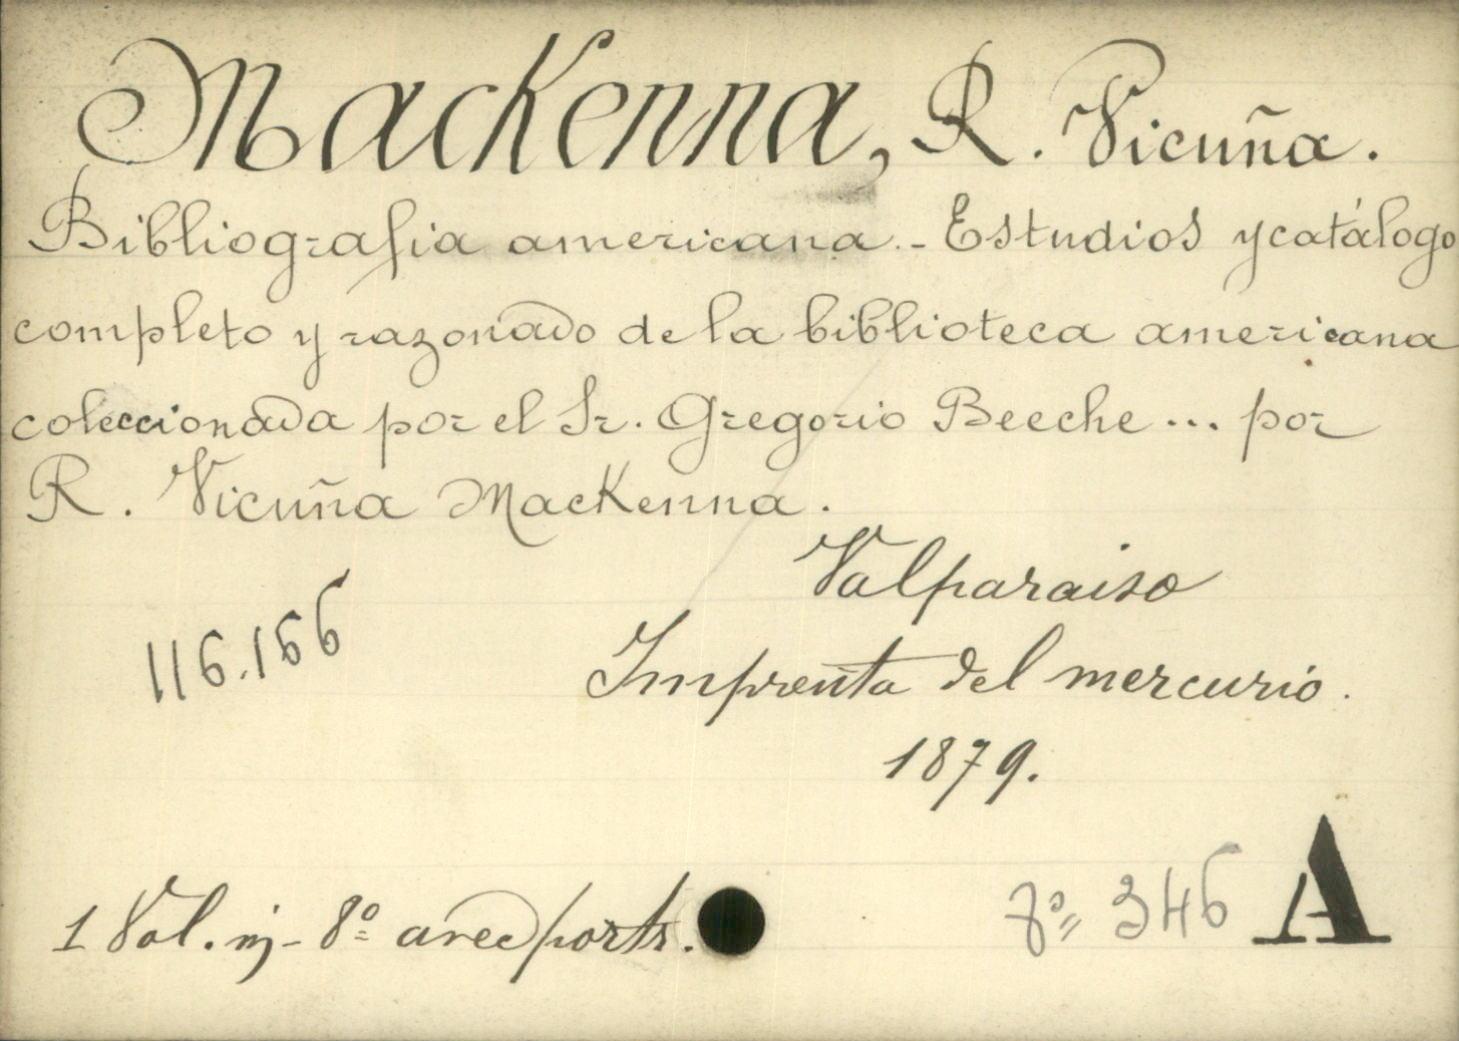 MacKenna, R. Vicuña.
Bibliografia americana. - Estudios y catálogo
completo y razonado de la biblioteca americana
coleccionada por el Sr. Gregorio Beeche ... por
R. Vicuña MacKenna.
Valparaiso
116.166
Imprenta del mercurio.
1879.
1 Vol. in-8º avec portr.
8º 346 A